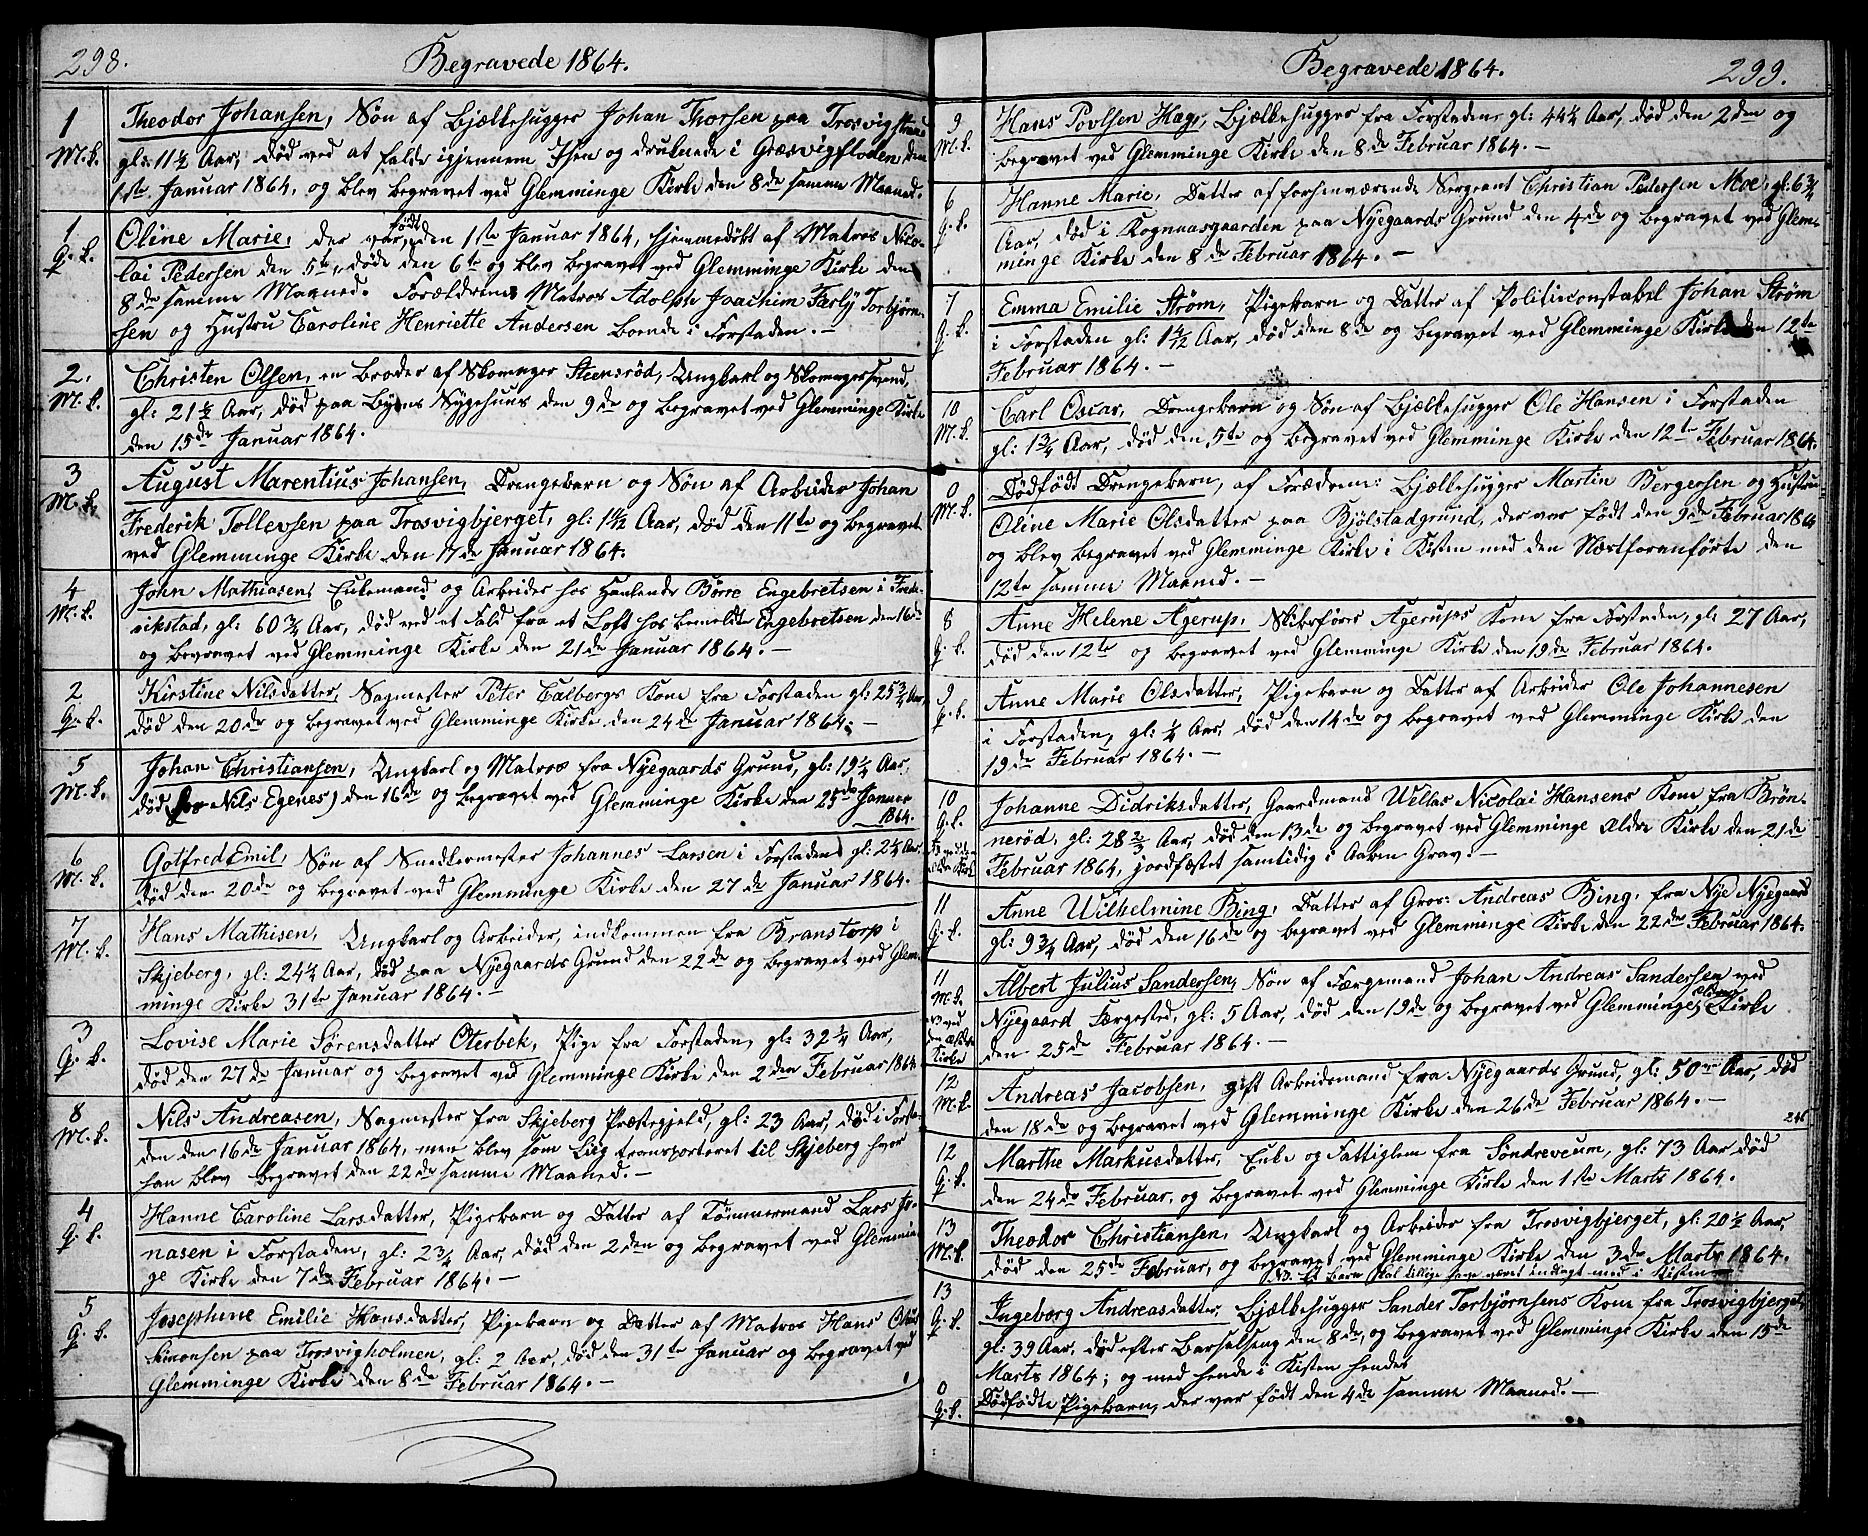 298.
Begravede 1864.
1
M.k.
Theodor Johansen, Søn af Bjælkehugger Johan Thorsen paa Trosvigstrand
gl: 11½ Aar, død ved at falde igjennem Isen og druknede i Græsvigfloden den
1ste Januar 1864, og blev begravet ved Glemminge Kirke den 8de samme Maaned.
1
Q.k.
Oline Marie, der var født den 1ste Januar 1864, hjemmedøbt af Matros Nico-
lai Pedersen den 5te, døde den 6te og blev begravet ved Glemminge Kirke den
8de samme Maaned. Forældrene Matros Adolph Joachim Torbjørn-
sen og Hustru Caroline Henriette Andersen boende i Forstaden. —
2.
M.k.
Christen Olsen, en Broder af Skomager Steensrød, Ungkarl og Skomagersvend,
gl: 21½ Aar, død paa Byens Sygehuus den 9de og begravet ved Glemminge Kirke
den 15de Januar 1864.
3
M.k.
August Marentius Johansen, Drengebarn og Søn af Arbeider Johan
Frederik Tollevsen paa Trosvigbjerget, gl: 1 1/12 Aar, død den 11te og begravet
ved Glemminge Kirke den 17de Januar 1864.
4
M.k.
John Mathiasen, Enkemand og Arbeider hos Handlende Børre Engebretsen i Frede-
rikstad, gl: 60¾ Aar, død ved et Fald fra et Loft hos bemeldte Engebretsen den 16de
og begravet ved Glemminge Kirke den 21de Januar 1864. —
2
Q.k.
Kirstine Nilsdatter, Sagmester Peter Calbergs Kone fra Forstaden gl: 25¾ Aar,
død den 20de og begravet ved Glemminge Kirke den 24de Januar 1864. —
5
M.k.
Johan Christiansen, Ungkarl og Matros fra Nyegaards Grund, gl: 19¼ Aar,
død (hos Nils Egenes) den 16de og begravet ved Glemminge Kirke den 25de Januar
1864.
6
M.k.
Gotfred Emil, Søn af Snedkermester Johannes Larsen i Forstaden gl: 2¼ Aar
død den 20de og begravet ved Glemminge Kirke den 27de Januar 1864.
7
M.k.
Hans Mathisen, Ungkarl og Arbeider, indkommen fra Branstorp i
Skjeberg, gl: 24½ Aar, død paa Nyegaards Grund den 22de og begravet ved Glem-
minge Kirke 31te Januar 1864. —
3
Q.k.
Lovise Marie Sørensdatter Oterbek, Pige fra Forstaden, gl: 32¼ Aar,
død den 27de Januar og begravet ved Glemminge Kirke den 2den Februar 1864
8
M.k.
Nils Andreasen, Sagmester fra Skjeberg Præstegjeld, gl: 23 Aar, død i Forsta-
den den 16de Januar 1864, men blev som Liig transporteret til Skjeberg hvor
han blev begravet den 22de samme Maaned. —
4
Q.k.
Hanne Caroline Larsdatter, Pigebarn og Datter af Tømmermand Lars Jo-
nasen i Forstaden, gl: 2¾ Aar, død den 2den og begravet ved Glemmin-
ge Kirke den 7de Februar 1864. —
5
Q.k.
Josephine Emilie Hansdatter, Pigebarn og Datter af Matros Hans
Simonsen paa Trosvigholmen, gl: 2 Aar, død den 31te Januar og begravet ved
Glemminge Kirke den 8de Februar 1864. —
Begravede 1864.
299.
9
M.k.
Hans Povlsen Hage, Bjælkehugger fra Forstaden gl: 44¼ Aar, død den 2den og
begravet ved Glemminge Kirke den 8de Februar 1864. —
6
Q.k.
Hanne Marie, Datter af forhenværende Sergeant Christian Pedersen Moe, gl: 6¾
Aar, død i Rognaasgaarden paa Nyegaards Grund den 4de og begravet ved Glem-
minge Kirke den 8de Februar 1864. —
7
Q.k.
Emma Emilie Strøm, Pigebarn og Datter af Politiconstabel Johan Strøm
i Forstaden gl: 1 1/12 Aar, død den 8de og begravet ved Glemminge Kirke den 12te
Februar 1864. —
10
M.k.
Carl Oscar, Drengebarn og Søn af Bjælkehugger Ole Hansen i Forstaden
gl: 1¾ Aar, død den 5te og begravet ved Glemminge Kirke den 12te Februar 1864.
0
M.k.
Dødfødt Drengebarn, af Forældrene: Bjælkehugger Martin Bergersen og Hustru
Oline Marie Olsdatter paa Bjølstadgrund, der var født den 9de Februar 1864
og blev begravet ved Glemminge Kirke i Kisten med den Næstforanførte den
12te samme Maaned. —
8
Q.k.
Anne Helene Agerup, Skibsfører Agerups Kone fra Forstaden, gl: 27 Aar,
død den 12te og begravet ved Glemminge Kirke den 19de Februar 1864.
9
Q.k.
Anne Marie Olsdatter, Pigebarn og Datter af Arbeider Ole Johannesen
i Forstaden, gl: ¼ Aar, død den 14de og begravet ved Glemminge Kirke den
19de Februar 1864. —
10
Q.k.
Johanne Didriksdatter, Gaardmand Wellas Nicolai Hansens Kone fra Brøn-
nerød, gl: 28⅔ Aar, død den 13de og begravet ved Glemminge ældre Kirke den 21de
Februar 1864, jordfæstet samtidig i Aaben Grav. —
11
Q.k.
Anne Wilhelmine Bing, Datter af Gros: Andreas Bing, fra Nye Nyegaard
gl: 9¾ Aar, død den 16de og begravet ved Glemminge Kirke den 22de Februar 1864.
11
M.k.
ved
den ældre
Kirke
Albert Julius Sandersen, Søn af Færgemand Johan Andreas Sandersen ved
Nyegaard Færgested, gl: 5 Aar, død den 19de og begravet ved Glemminge ældre Kirke
den 25de Februar 1864. —
12
M.k.
Andreas Jacobsen, gift Arbeidsmand fra Nyegaards Grund, gl: 50 Aar, død
den 18de og begravet ved Glemminge Kirke den 26de Februar 1864. —
12
Q.k.
Marthe Markusdatter, Enke og Fattiglem fra Søndreveum, gl: 73 Aar død
den 24de Februar, og begravet ved Glemminge Kirke den 1ste Marts 1864.
13
M.k.
Theodor Christiansen, Ungkarl og Arbeider fra Trosvigbjerget, gl: 20½ Aar,
død den 25de Februar, og begravet ved Glemminge Kirke den 3de Marts 1864.
NB. Et Barn skal tillige have været indlagt med i Kisten
13
Q.k.
Ingeborg Andreasdatter, Bjælkehugger Sander Torbjørnsens Kone fra Trosvigbjerget,
gl: 39 Aar, død efter Barselseng den 8de, og begravet ved Glemminge Kirke den 15de
Marts 1864; og med hende i Kisten hendes
0
Q.k.
Dødfødte Pigebarn, der var født den 4de samme Maaned. —